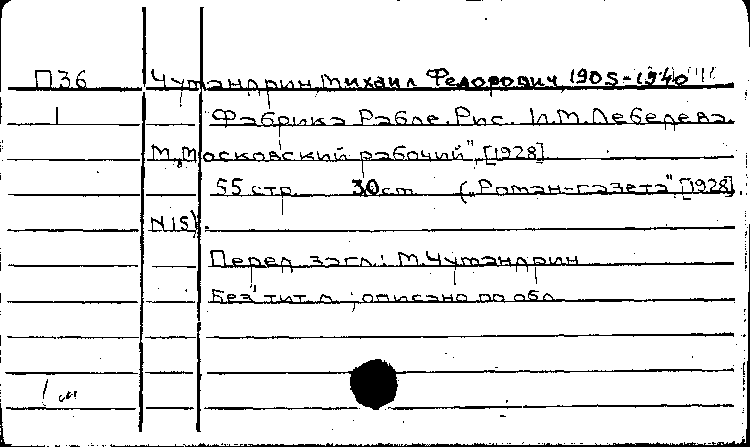 П36 Чумандрин, Михаил Федорович, 1905-1940
1 Фабрика Рабле. Рис. И.М. Лебедева.
М., „Московский рабочий", [1928].
55 стр. 30 см. („Роман-газета", [1928],
N 15).
Перед загл.: М. Чумандрин
Без тит. л.; описано по обл.
1